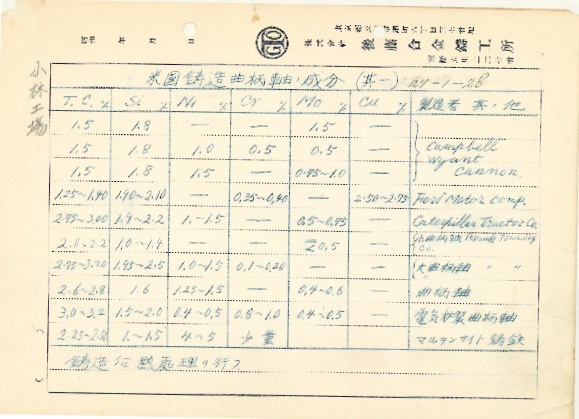 昭和 年 月 日
株式会社 後藤合金鋳工所
小林工場
米國鋳造曲柄軸ノ成分 (其一) 27-1-28
T.C. % Si % Ni % Cr % Mo % Cu % 製造者 其ノ他
1.5 1.8 — — 1.5 —
1.5 1.8 1.0 0.5 0.5 — Campbell Wyant Cannon.
1.5 1.8 1.5 — 0.75~1.0 —
1.25~1.40 1.90~2.10 — 0.35~0.40 — 2.50~2.75 Ford Motor Comp.
2.75~3.00 1.9~2.2 1.~1.5 — 0.5~0.75 — Caterpillar Tractor Co.
2.0~2.2 1.0~1.4 — — 0.5 — Co.
2.75~3.20 1.95~2.5 1.0~1.5 0.1~0.20 — — 大曲柄軸 〃 〃
2.6~2.8 1.6 1.25~1.5 — 0.4~0.6 — 曲柄軸 〃
3.0~3.2 1.5~2.0 0.4~0.5 0.8~1.0 0.4~0.5 — 電気炉製曲柄軸
1.~1.5 4~5 少量 — — マルテンサイト鋳鉄
鋳造后熱處理ヲ行フ